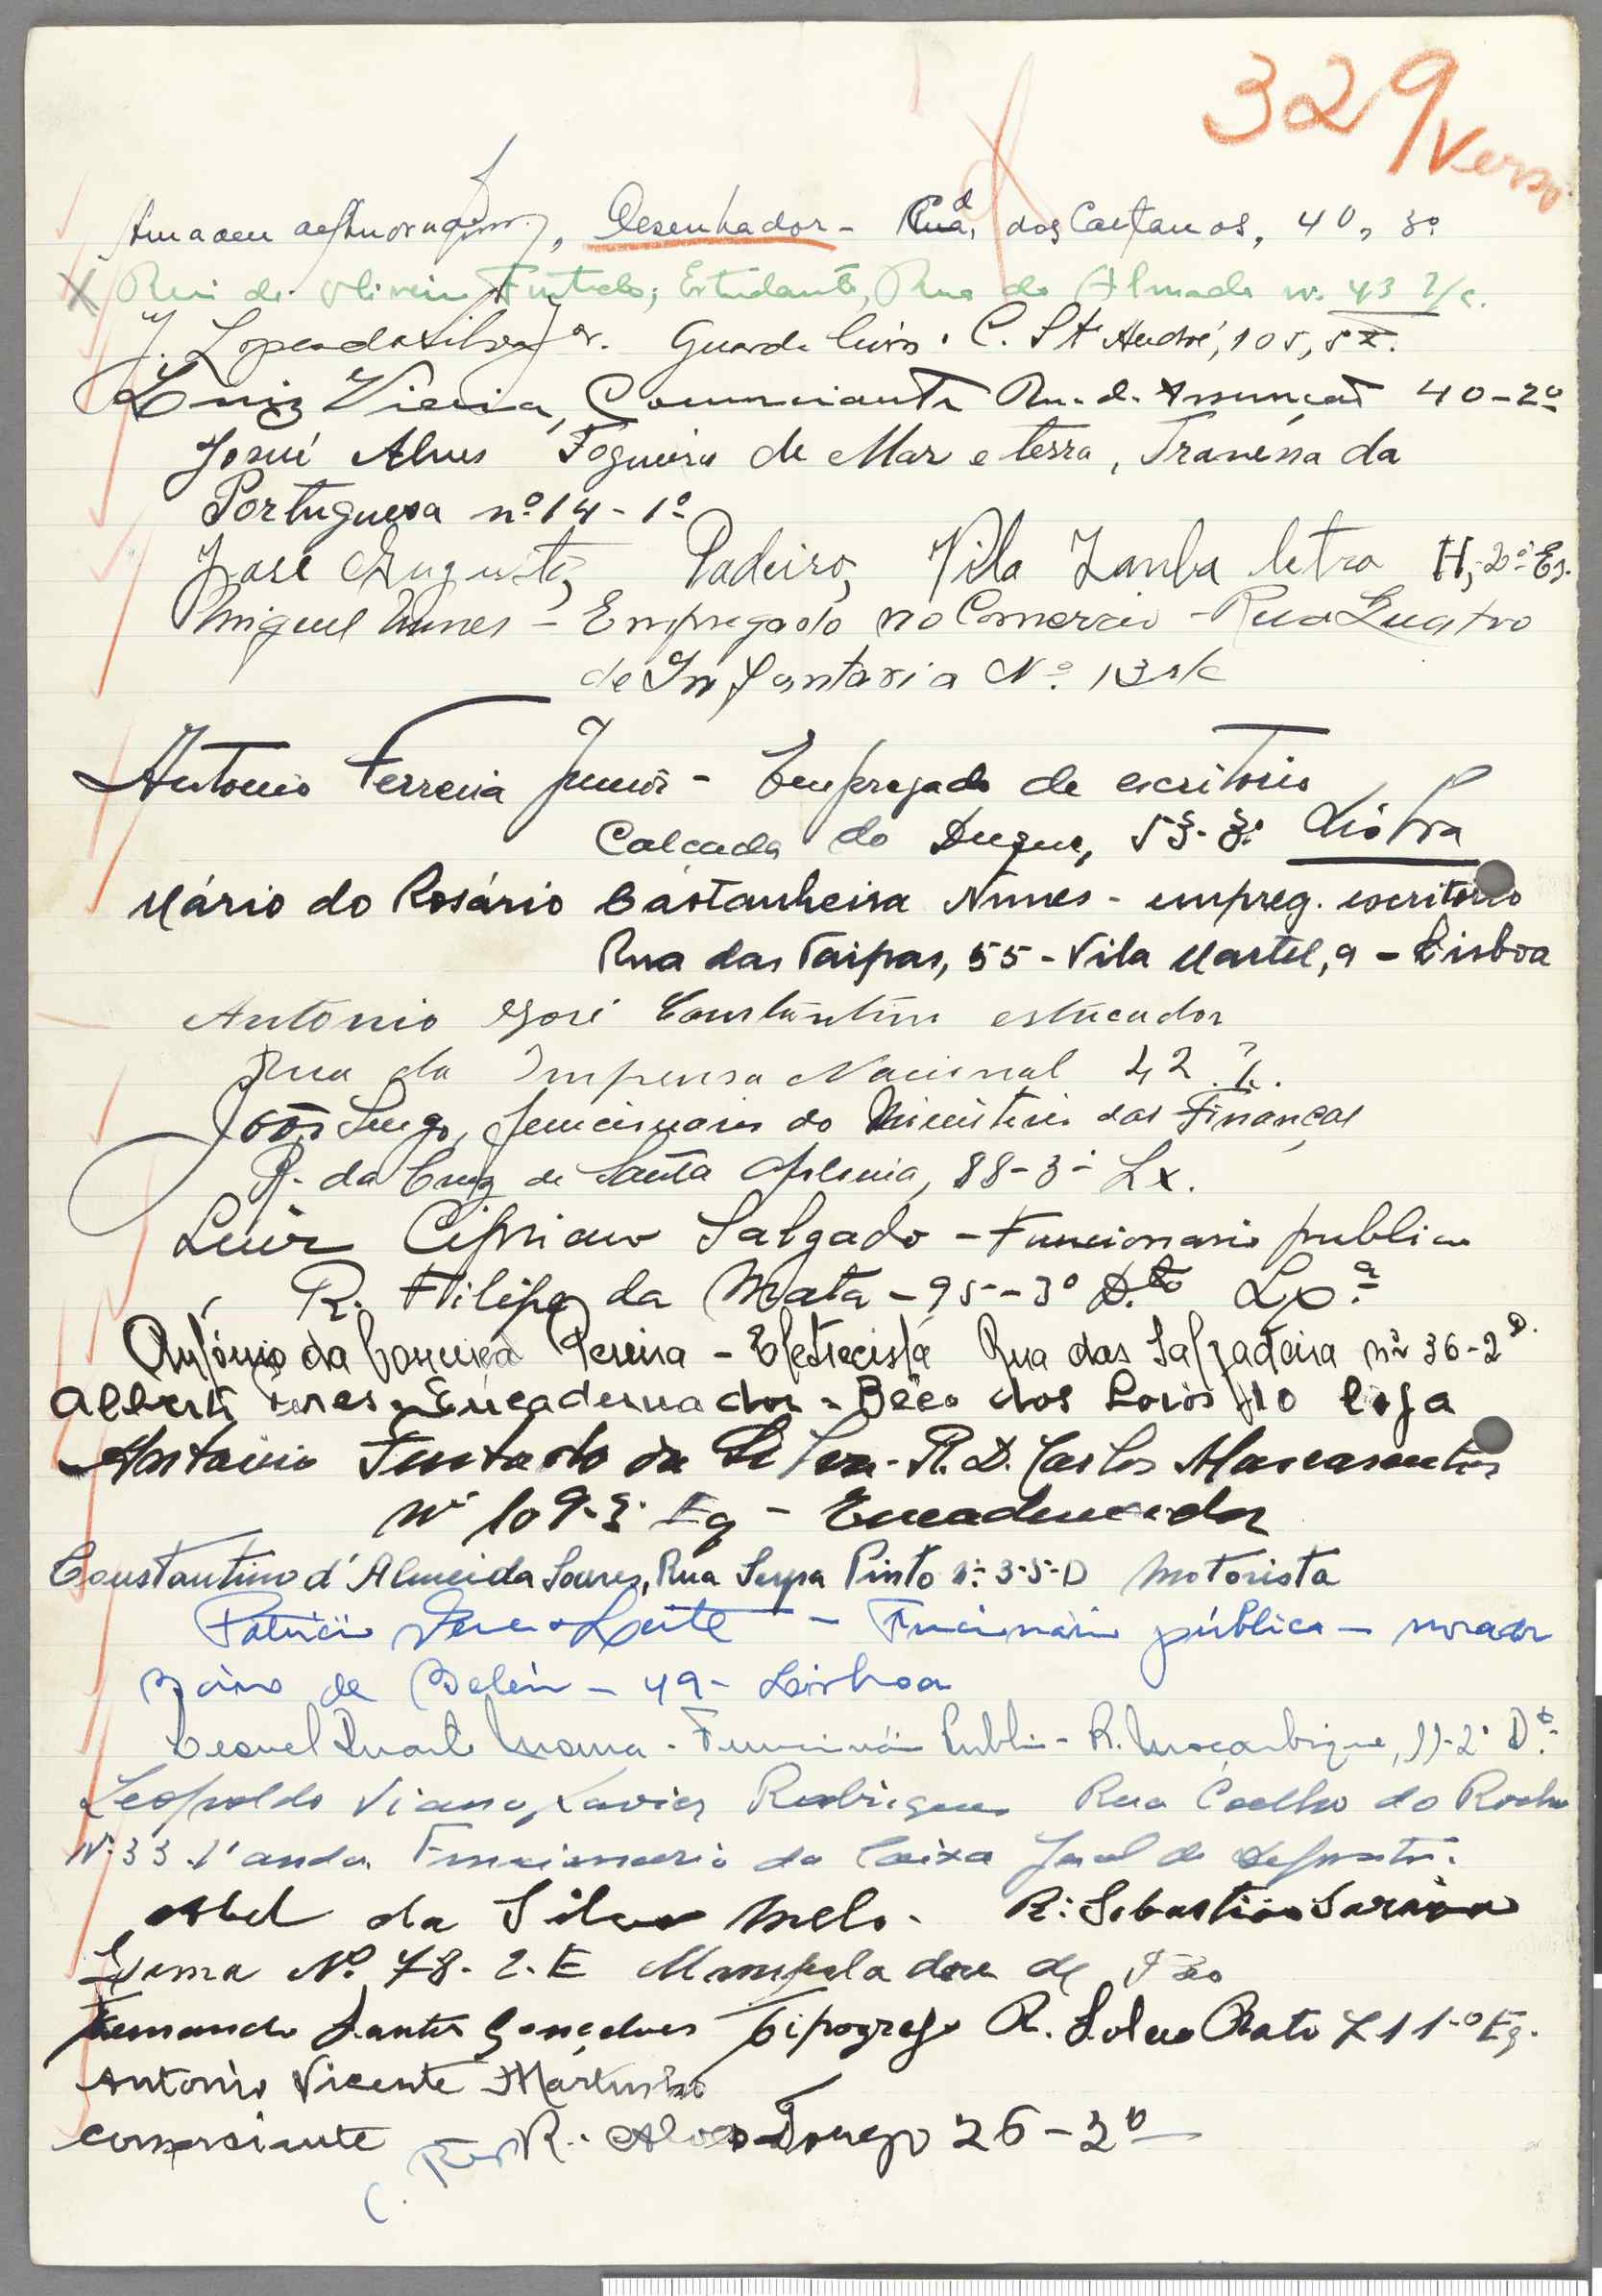 329 Verso
Desenhador - Rua dos Caetanos, 40, 3º
Rui de Oliveira Furtado, Estudante, Rua do Almada nº 43 r/c.
J. Lopes da Silva Jor. Guarda livros. C. Stº André, 105, 5º
Luiz Vieira, Comerciante Rua d. Assunção 40-2º
Josué Alves Fogueiro de Mar e terra, Travessa da
Portuguesa nº 14-1º
José Augusto, Padeiro, Vila Zamba letra H, 2º Es.
Miguel Nunes - Empregado no Comercio - Rua Quatro
de Infantaria Nº 13 r/c
Antonio Ferreira Junior - Empregado de escritorio
Calçada do Duque, 53-3º Lisboa
Mário do Rosário Castanheira Nunes - empreg. escritorio
Rua das Taipas, 55 - Vila Martel, 9 - Lisboa
Antonio José Constantino estucador
Rua da Imprensa Nacional 42
João Lugo, funcionario do Ministerio das Finanças
R. da Cruz de Santa Apolonia, 88-3º Lx.
Luis Cipriano Salgado - Funcionario publico
R. Filipe da Mata - 95 - 3º D.to Lxª
António da Pereira - Eletrecista Rua das Salgadeira nº 36-2º
Alberto Encadernador - Bêco dos Loios 10 loja
Antonio Furtado da Silva - R. D. Carlos Mascarenhas
Nº 109-3º Eq - Encadernador
Constantino d'Almeida Soures, Rua Serpa Pinto nº 3-5-D Motorista
Patricio Leite - Funcionário público - morador
Bairro de Belém - 49 - Lisboa
Leonel Duarte - Funcionário Publi - R. Moçambique, 11-2º Dt.
Leopoldo Viana Xavier Rodrigues Rua Coelho do Rocha
Nº 33 1º andar Funcionario da Caixa Geral de Depositos.
Abel da Silva Melo - R: Sebastião Saraiva
Lima Nº 78-2-E Manipulador de Pão
Fernando Santos Gonçalves Tipografo R. Sol ao Rato 211-º Eq.
Antonio Vicente Martinho
comerciante R. Torgo 26-3º